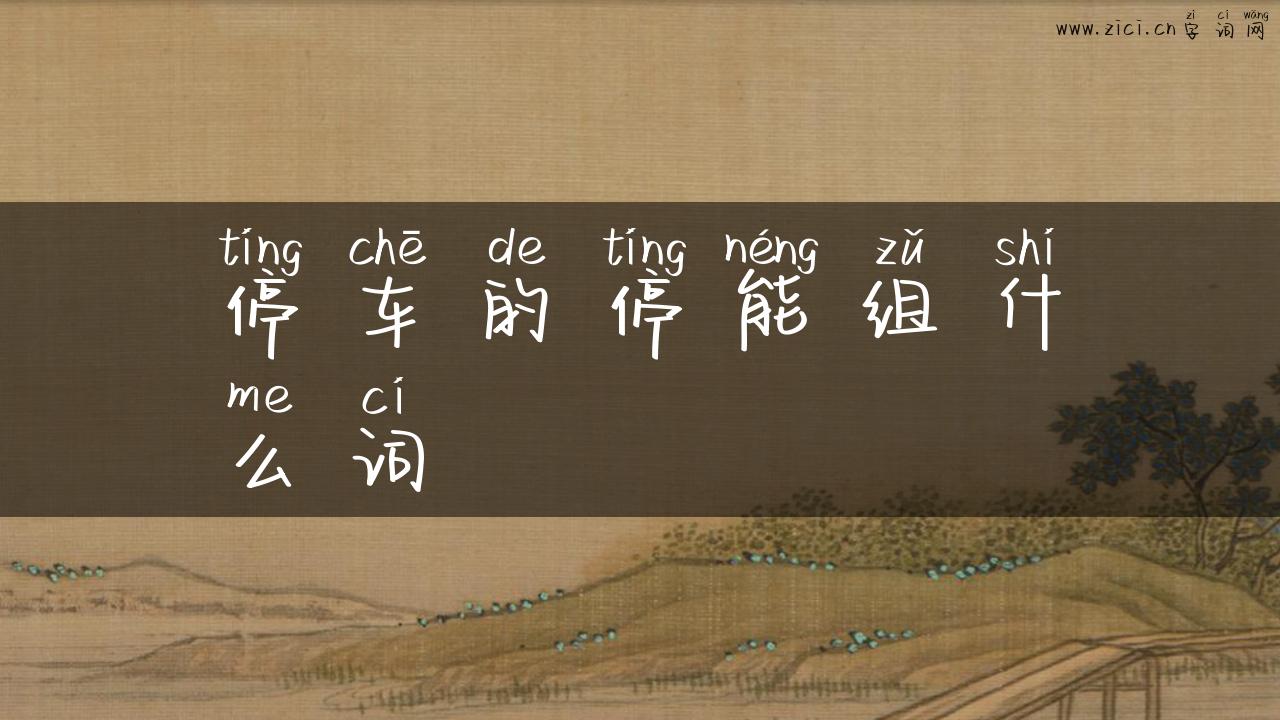 zì cí wǎng
www.zici.cn 字词网
tíng chē de tíng néng zǔ shí
停车的停能组什
me cí
么词